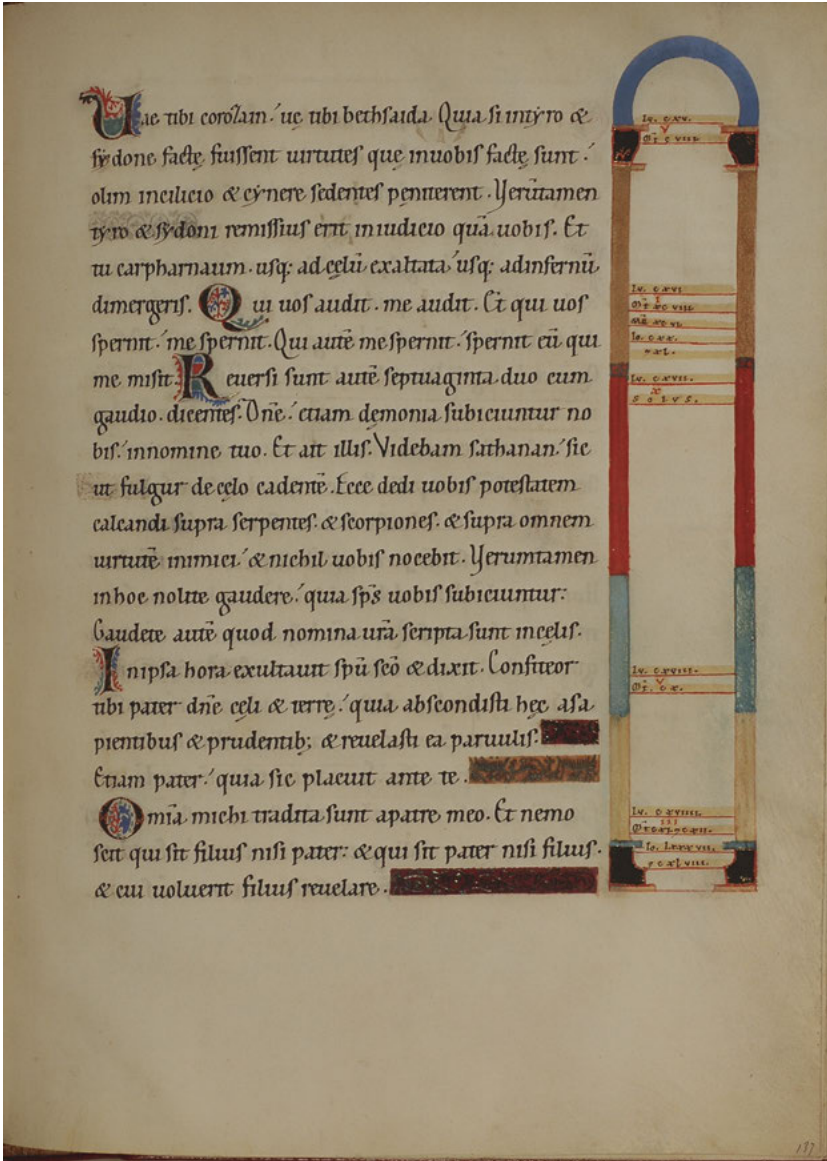 Uae tibi corozain ue tibi bethsaida. Quia si in tyro &
sydone factę fuissent uirtutes que inuobis factę sunt.
olim incilicio & cynere sedentes peniterent. Uerūtamen
tyro & sydoni remissius erit iniudicio quā uobis. Et
tu carpharnaum. usq; ad cęlū exaltata usq; adinfernū
dimergeris. Qui uos audit. me audit. Et qui uos
spernit. me spernit. Qui autē me spernit. spernit eū qui
me misit. Reuersi sunt autē septuaginta duo cum
gaudio. dicentes. Dn̄e. etiam dęmonia subiciuntur no
bis. innomine tuo. Et ait illis. Videbam sathanan. sic
ut fulgur de cęlo cadentē. Ecce dedi uobis potestatem
calcandi supra serpentes. & scorpiones. & supra omnem
uirtutē inimici. & nichil uobis nocebit. Uerumtamen
inhoc nolite gaudere. quia sp̄s uobis subiciuntur.
Gaudete autē quod nomina ur̄a scripta sunt incęlis.
Inipsa hora exultauit spū scō & dixit. Confiteor
tibi pater dn̄e cęli & terrę. quia abscondisti hęc asa
pientibus & prudentib; & reuelasti ea paruulis.
Etiam pater. quia sic placuit ante te.
Om̄ia michi tradita sunt apatre meo. Et nemo
scit qui sit filius nisi pater. & qui sit pater nisi filius.
& cui uoluerit filius reuelare.
Lv. cxv.
v
Lv. cxvi
i
Lv. cxvii.
x
solvs.
Lv. cxviii.
v
Lv. cxviiii.
iii
Io. lxxxvii.
cxlviii.
137